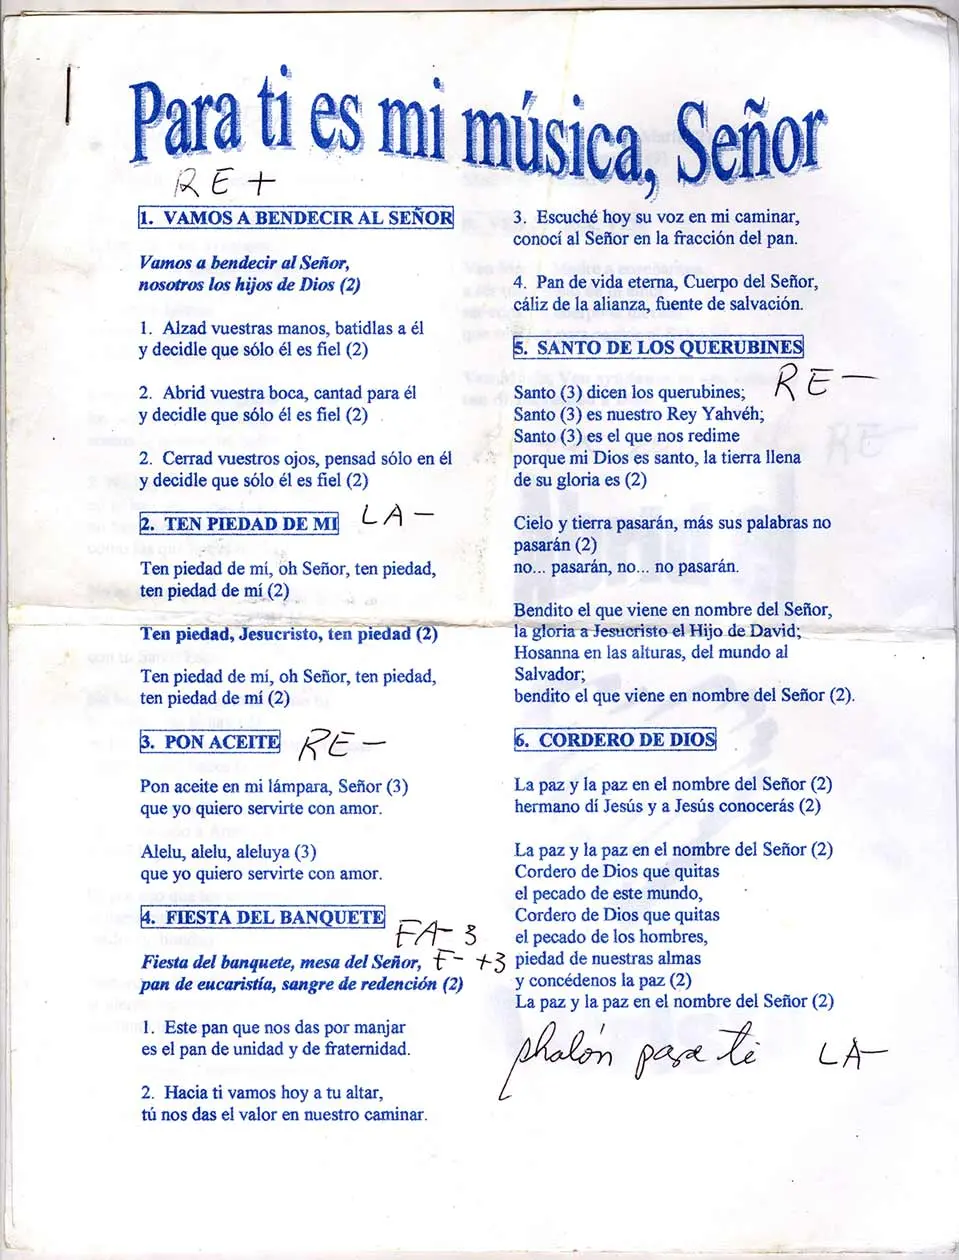 Para ti es mi música, Señor
RE+
1. VAMOS A BENDECIR AL SEÑOR
Vamos a bendecir al Señor,
nosotros los hijos de Dios (2)
1. Alzad vuestras manos, batidlas a él
y decidle que sólo él es fiel (2)
2. Abrid vuestra boca, cantad para él
y decidle que sólo él es fiel (2)
2. Cerrad vuestros ojos, pensad sólo en él
y decidle que sólo él es fiel (2)
2. TEN PIEDAD DE MI LA-
Ten piedad de mí, oh Señor, ten piedad,
ten piedad de mí (2)
Ten piedad, Jesucristo, ten piedad (2)
Ten piedad de mí, oh Señor, ten piedad,
ten piedad de mí (2)
3. PON ACEITE RE-
Pon aceite en mi lámpara, Señor (3)
que yo quiero servirte con amor.
Alelu, alelu, aleluya (3)
que yo quiero servirte con amor.
4. FIESTA DEL BANQUETE FA- 3
Fiesta del banquete, mesa del Señor, +3
pan de eucaristía, sangre de redención (2)
1. Este pan que nos das por manjar
es el pan de unidad y de fraternidad.
2. Hacia ti vamos hoy a tu altar,
tú nos das el valor en nuestro caminar.
3. Escuché hoy su voz en mi caminar,
conocí al Señor en la fracción del pan.
4. Pan de vida eterna, Cuerpo del Señor,
cáliz de la alianza, fuente de salvación.
5. SANTO DE LOS QUERUBINES
RE-
Santo (3) dicen los querubines;
Santo (3) es nuestro Rey Yahvéh;
Santo (3) es el que nos redime
porque mi Dios es santo, la tierra llena
de su gloria es (2)
RE-
Cielo y tierra pasarán, más sus palabras no
pasarán (2)
no... pasarán, no... no pasarán.
Bendito el que viene en nombre del Señor,
la gloria a Jesucristo el Hijo de David;
Hosanna en las alturas, del mundo al
Salvador;
bendito el que viene en nombre del Señor (2).
6. CORDERO DE DIOS
La paz y la paz en el nombre del Señor (2)
hermano dí Jesús y a Jesús conocerás (2)
La paz y la paz en el nombre del Señor (2)
Cordero de Dios que quitas
el pecado de este mundo,
Cordero de Dios que quitas
el pecado de los hombres,
piedad de nuestras almas
y concédenos la paz (2)
La paz y la paz en el nombre del Señor (2)
phalón para ti LA-